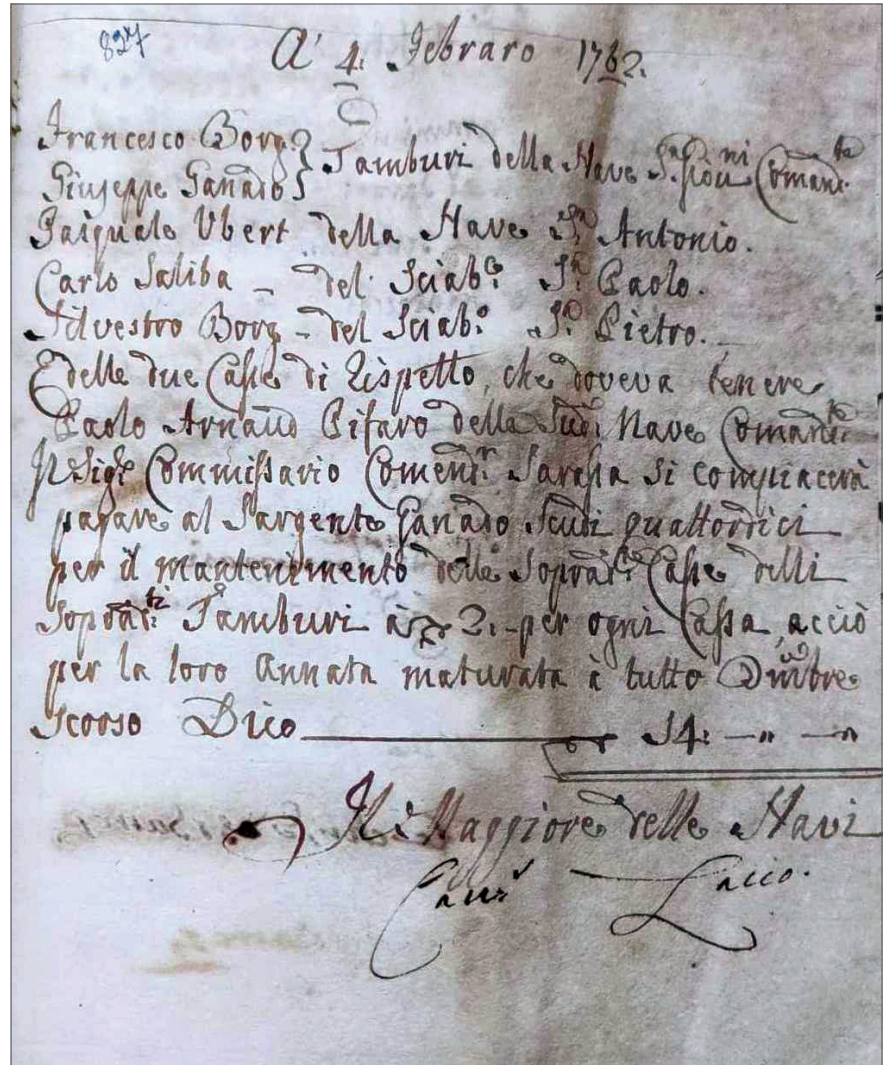 827
A' 4. Febraro 1762.
Francesco Borg
Giuseppe Ganado } Tamburi della Nave S. Giovni Comandte
Pasquale Ubert della Nave Sn Antonio.
Carlo Saliba - del Sciabo Sn Paolo.
Silvestro Borg - del Sciabo Sn Pietro.
E delle due Casse di Rispetto, che doveva tenere
Paolo Arnaud Pifaro della Sudi Nave Comandte
Il Sigr Commissario Comendr si compiacerà
pagare al Sargente Ganado Scudi quattordici
per il mantenimento delle Sopradte Casse delli
Sopradti Tamburi à 2. per ogni Cassa, acciò
per la loro Annata maturata à tutto
scorso Dico 14: —„ —„
Il Maggiore delle Navi